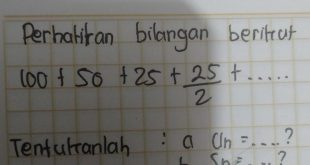 Perhatikan bilangan berikut
100 + 50 + 25 + 25/2 + .....
Tentukanlah : a Un = ....?
b Sn = ....?